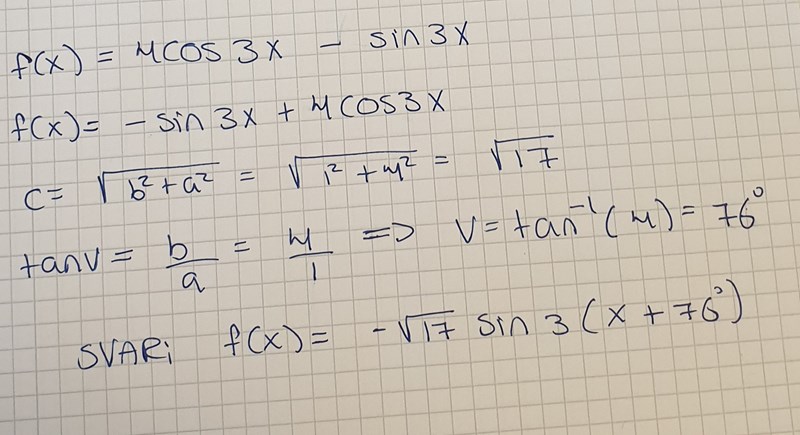 f(x) = 4cos 3x - sin 3x
f(x) = - sin 3x + 4 cos3x
c = √b²+a² = √1²+4² = √17
tanv = b/a = 4/1 => v = tan⁻¹(4) = 76°
SVAR: f(x) = -√17 sin 3(x + 76°)